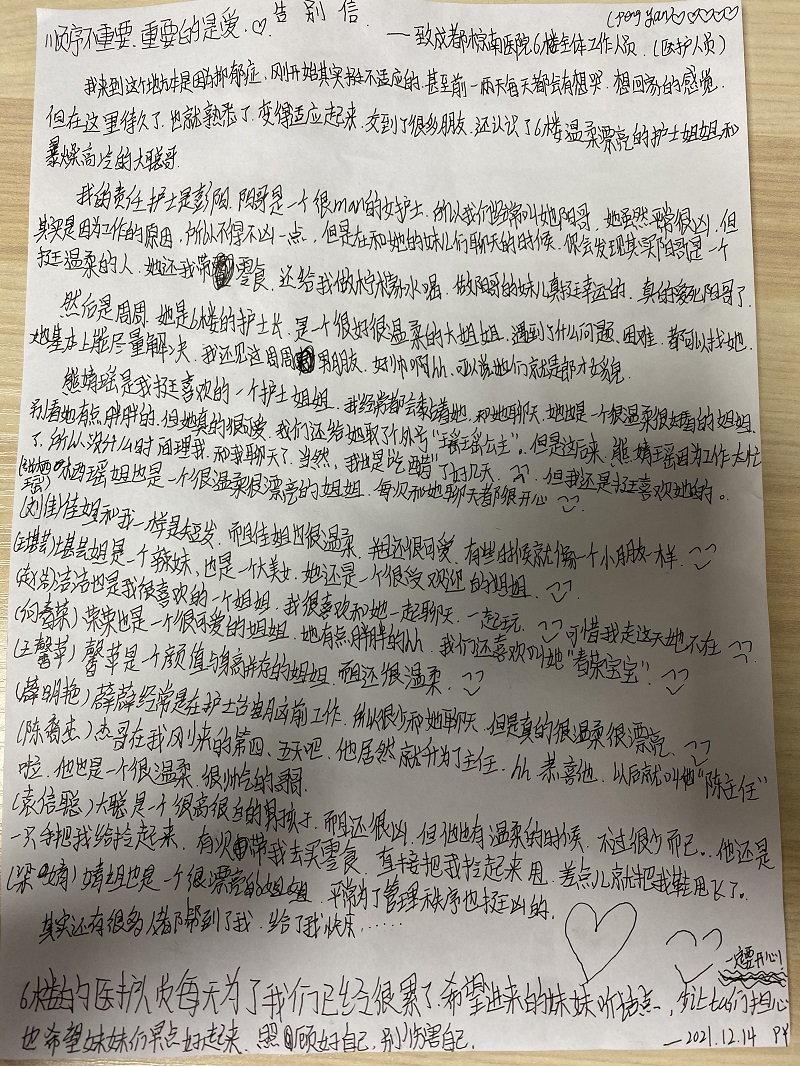 告别信 (Peng Yan♡♡♡♡♡)
顺序不重要、重要的是爱、♡ ——致成都棕南医院6楼全体工作人员、(医护人员)
我来到这个地方本是因为抑郁症、刚开始其实挺不适应的、甚至前一两天每天都会有想哭、想回家的感觉、
但在这里待久了、也就熟悉了、变得适应起来、交到了很多朋友、还认识了6楼温柔漂亮的护士姐姐和
暴燥高冷的大聪哥、
我的责任护士是彭阳、阳哥是一个很man的女护士、所以我们经常叫她阳哥、她虽然平常很凶、但
其实是因为工作的原因、所以不得不凶一点、但是在和她的妹儿们聊天的时候、你会发现其实阳哥是一个
挺温柔的人、她还我带零食、还给我做柠檬水喝、做阳哥的妹儿真挺幸运的、真的爱死阳哥了、
然后是周周、她是6楼的护士长、是一个很好很温柔的大姐姐、遇到了什么问题、困难、都可以找她、
她基本上能尽量解决、我还见过周周男朋友、好帅啊hh、可以说她们就是郎才女貌、
熊婧瑶是我挺喜欢的一个护士姐姐、我经常都会粘着她、和她聊天、她也是一个很温柔很好看的姐姐、
别看她有点胖胖的、但她真的很可爱、我们还给她取了个外号"瑶瑶公主"、但是这后来、熊婧瑶因为工作太忙
了、所以没什么时间理我、和我聊天了、当然、我也是"吃醋"了好几天、但我还是挺喜欢她的。
西瑶姐也是一个很温柔很漂亮的姐姐、每次和她聊天都很开心
(刘佳)佳姐和我一样是短发、而且佳姐也很温柔、并且还很可爱、有些时候就像一个小朋友一样、
(王堪芸)堪芸姐是一个辣妹、也是一个大美女、她还是一个很受欢迎的姐姐、
(赵洁)洁洁也是我很喜欢的一个姐姐、我很喜欢和她一起聊天、一起玩、
(何春荣)荣荣也是一个很可爱的姐姐、她有点胖胖的hh、我们还喜欢叫她"春荣宝宝"、可惜我走这天她不在、
(王馨苹)馨苹是一个颜值与身高并存的姐姐、而且还很温柔、
(薛明艳)薛薛经常是在护士台电脑前工作、所以很少和她聊天、但是真的很温柔很漂亮、
(陈裔杰)杰哥在我刚来的第四、五天吧、他居然就升为了主任、hh、恭喜他、以后就叫他"陈主任"
啦、他也是一个很温柔、很帅气的哥哥、
(袁信聪)大聪是一个很高很白的男孩子、而且还很凶、但他也有温柔的时候、不过很少而已。他还是
一只手把我给拎起来、有次带我去买零食、直接把我拎起来甩、差点儿就把我鞋甩飞了。
(梁婧)婧姐也是一个很漂亮的姐姐、平常为了管理秩序也挺凶的、
其实还有很多人都帮到了我、给了我快乐……
一定要开心!
6楼的医护人员每天为了我们已经很累了、希望进来的妹妹听话点、少让她们担心
也希望妹妹们早点好起来、照顾好自己、别伤害自己、 —2021.12.14 PY